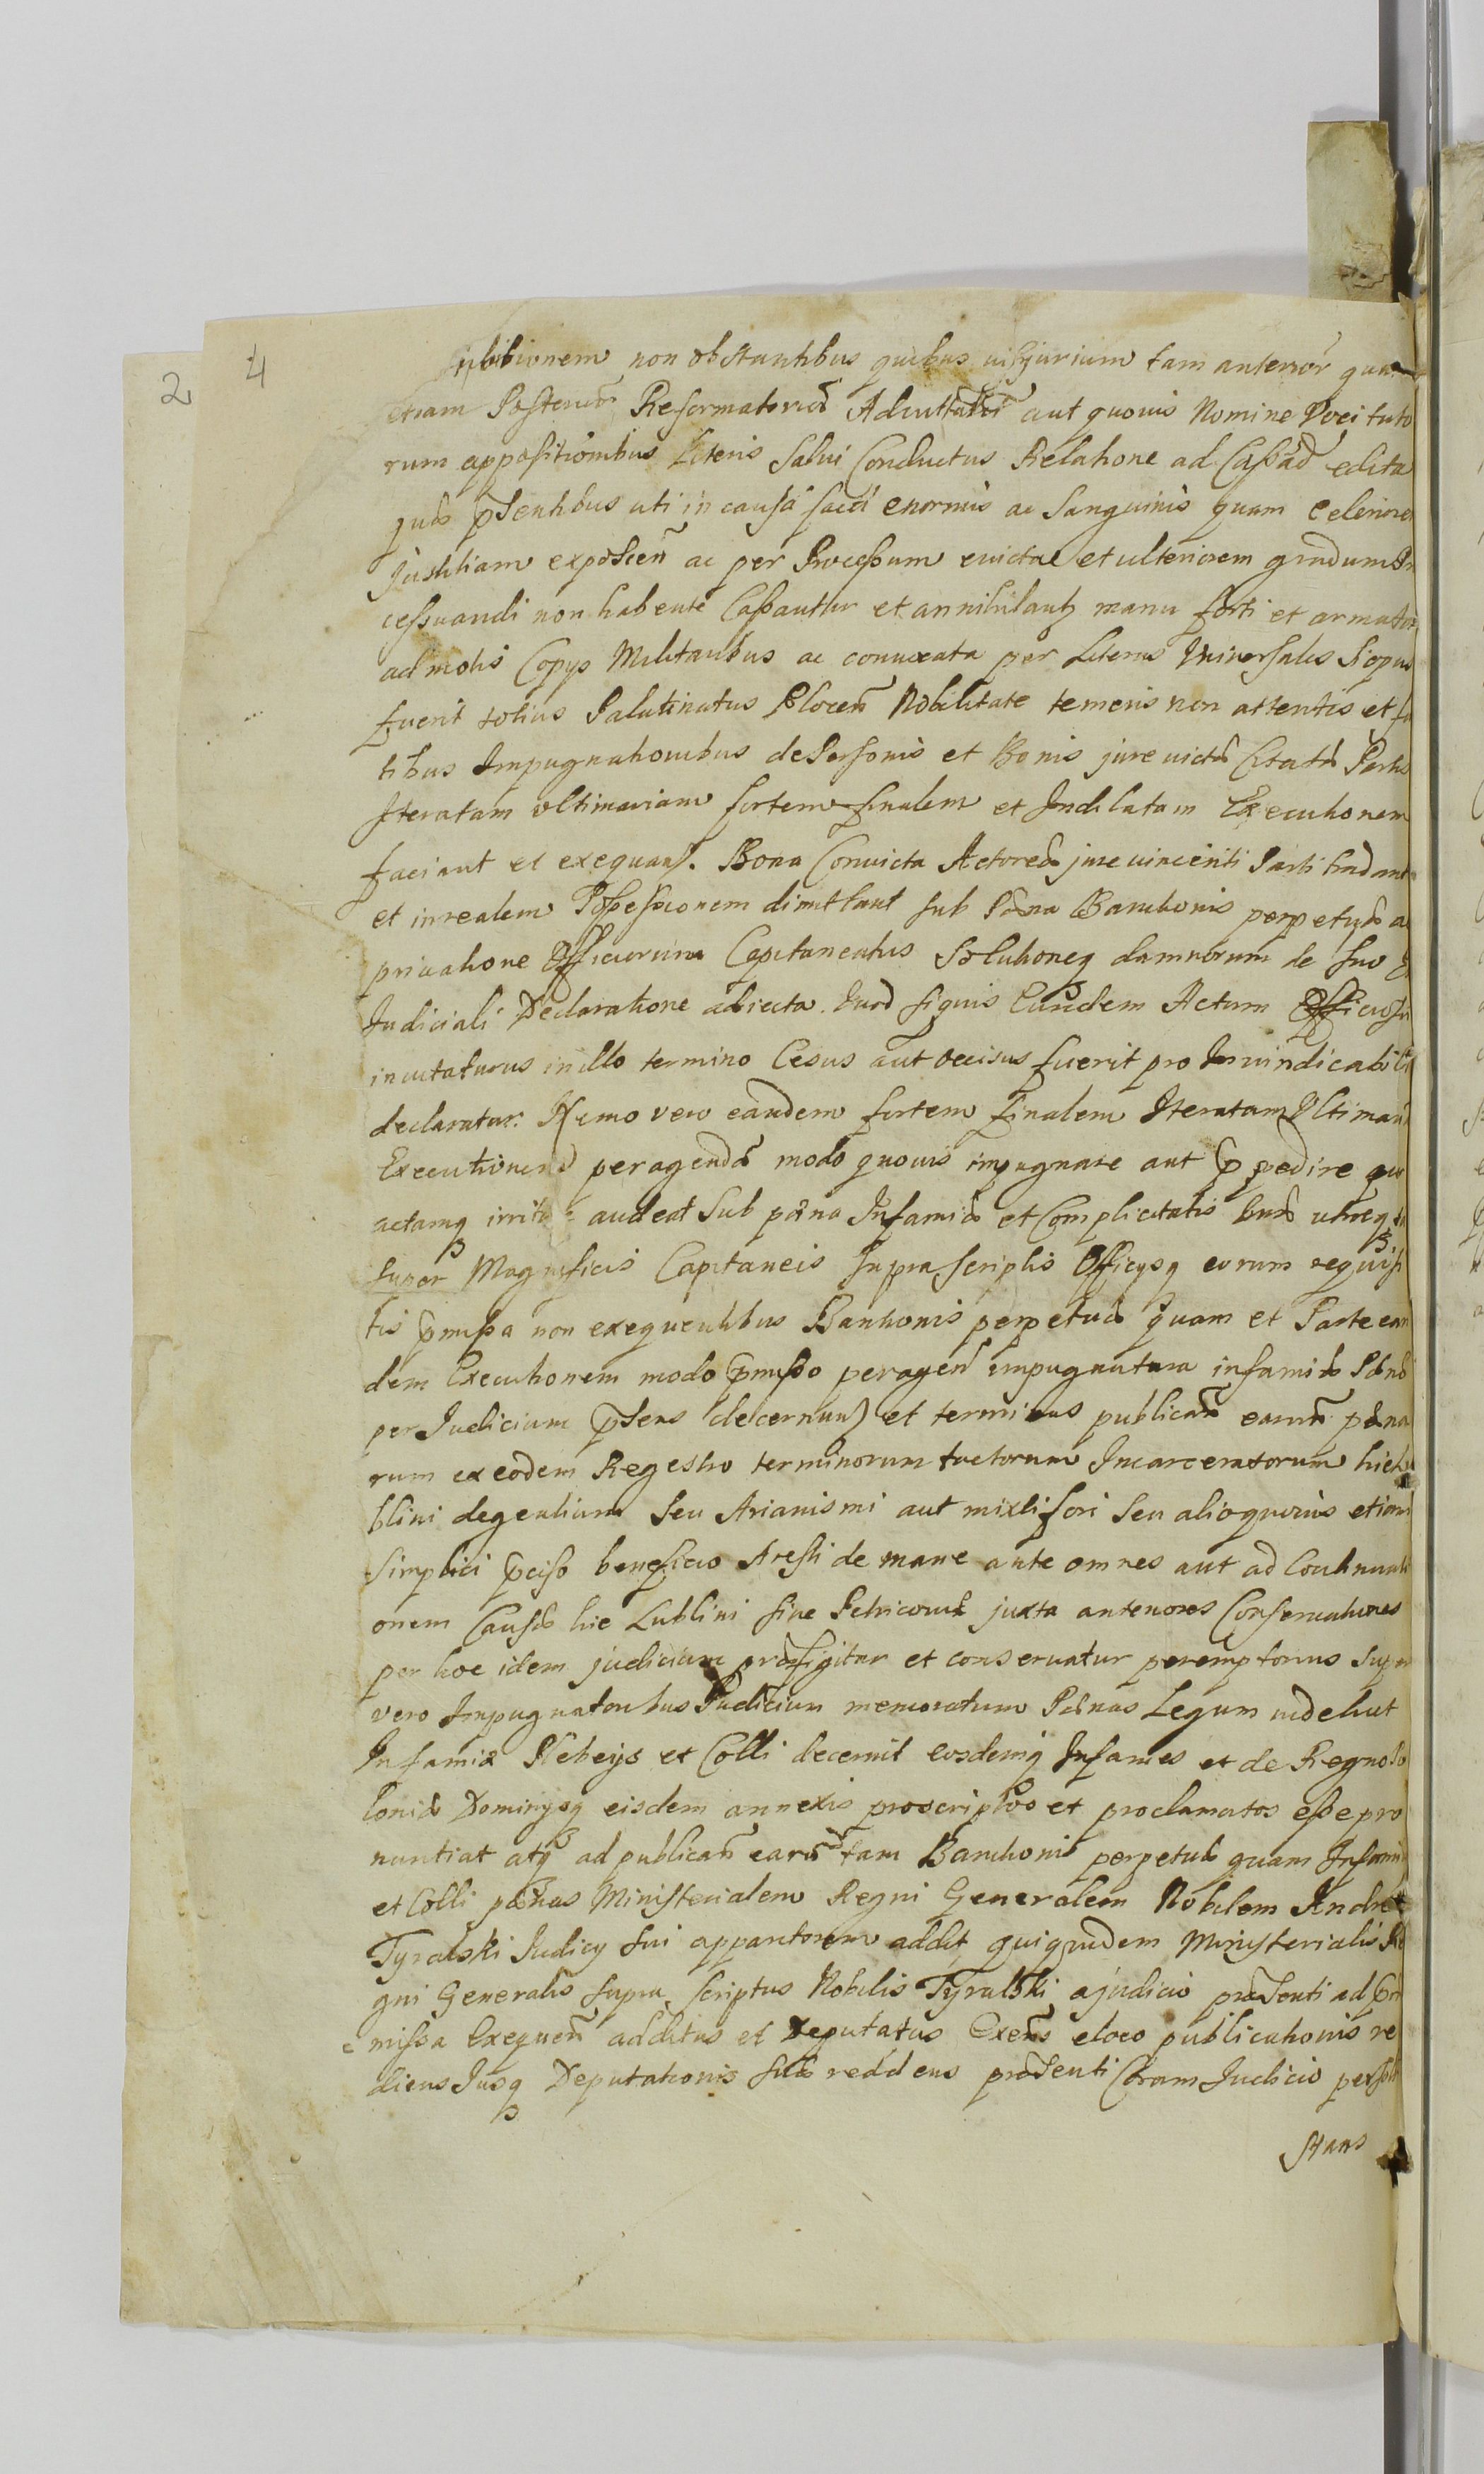 2 4
non obstantibus quibus uis jurium tam anterior quam
etiam Posterior Reformatoria aut quouis Nomine Voci tuto
rum appositionibus Literis Salui Conductus Relatione ad Cassad edita
quæ pSentibus uti in causa facti enormis ac Sanguinis quam Celeriorem
Justitiam exposcen ac per Processum euictae et ulteriorem gradum
cessuandi non habente Cassantur et annihilantz manu forti et armata
admotis Copys Militaribus ac conuocata per Literas Vniuersales Si opus
fuerit totius Palatinatus Plocen Nobilitate temeris non attentis et
tibus Impugnationibus de Personis et Bonis jure victæ Citatæ Partis
Iteratam ultimariam fortem finalem et Indilatam Executionem
faciant et exequanz. Bona Conuicta Actoreæ jure uincenti Parti tradant
et in realem Possessionem dimittant sub Pœna Bannitionis perpetuæ a
priuatione Officiorum Capitaneatus Solutioneq damnorum de Suo
Judiciali Declaratione adiecta. Quod siquis Eundem Actum
inuitaturus in illo termino Cesus aut occisus fuerit pro Inuindicabili
declaratur. Nemo vero eandem fortem finalem Iteratam Vltimari
Executionem peragendã modo quouis impugnare aut ppedire
actamq irrita audeat Sub pœna Infamiæ et Complicitatis
super Magnificis Capitaneis Supra scriptis Officysq eorum requisi
tis pmissa non exequentibus Bannitionis perpetuæ quam et Parte ean
dem Executionem modo pmisso peragen impugnatura infamiæ Pœnæ
per Judicium pSens decernunz et terminus publican earum pœna
rum ex eodem Regestro terminorum tactorum Incarceratorum hic Lu
blini degentium Seu Arianismi aut mixti fori Seu alio quouis etiam
Simplici pciso beneficio Aresti de mane ante omnes aut ad Continuati
onem Causæ hic Lublini siue Petricouiæ juxta anteriores Conseruationes
per hoc idem judicium præfigitur et conseruatur peremptorius Super
vero Impugnatoribus Judicium memoratum Pœnas Legum
Infamiæ Plebeijs et Colli decernit eosdemq Infames et de Regno Po
loniæ Dominysq eisdem annexis proscriptos et proclamatos esse pro
nuntiat atq ad publican earũ tam Bannitionis perpetuæ quam Infamiæ
et Colli pœnas Ministerialem Regni Generalem Nobilem Andreã
Tyralski Judicy sui apparitorem addit quiquidem Ministerialis Re
gni Generalis supra scriptus Nobilis Tyralski a judicio præsenti ad
missa Exequen additus et Deputatus Exens eloco publicationis re
diens Jusq Deputationis suæ reddens præsenti Coram Judicio
stans